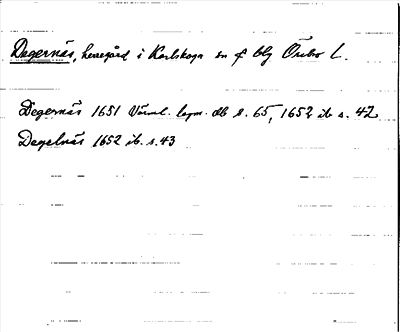 Degernäs, herregård i Karlskoga sn o f blg Örebro L.
Degernäs 1651 Värml. lagm. db s. 65, 1652 ib s. 42
Degelnäs 1652 ib. s. 43